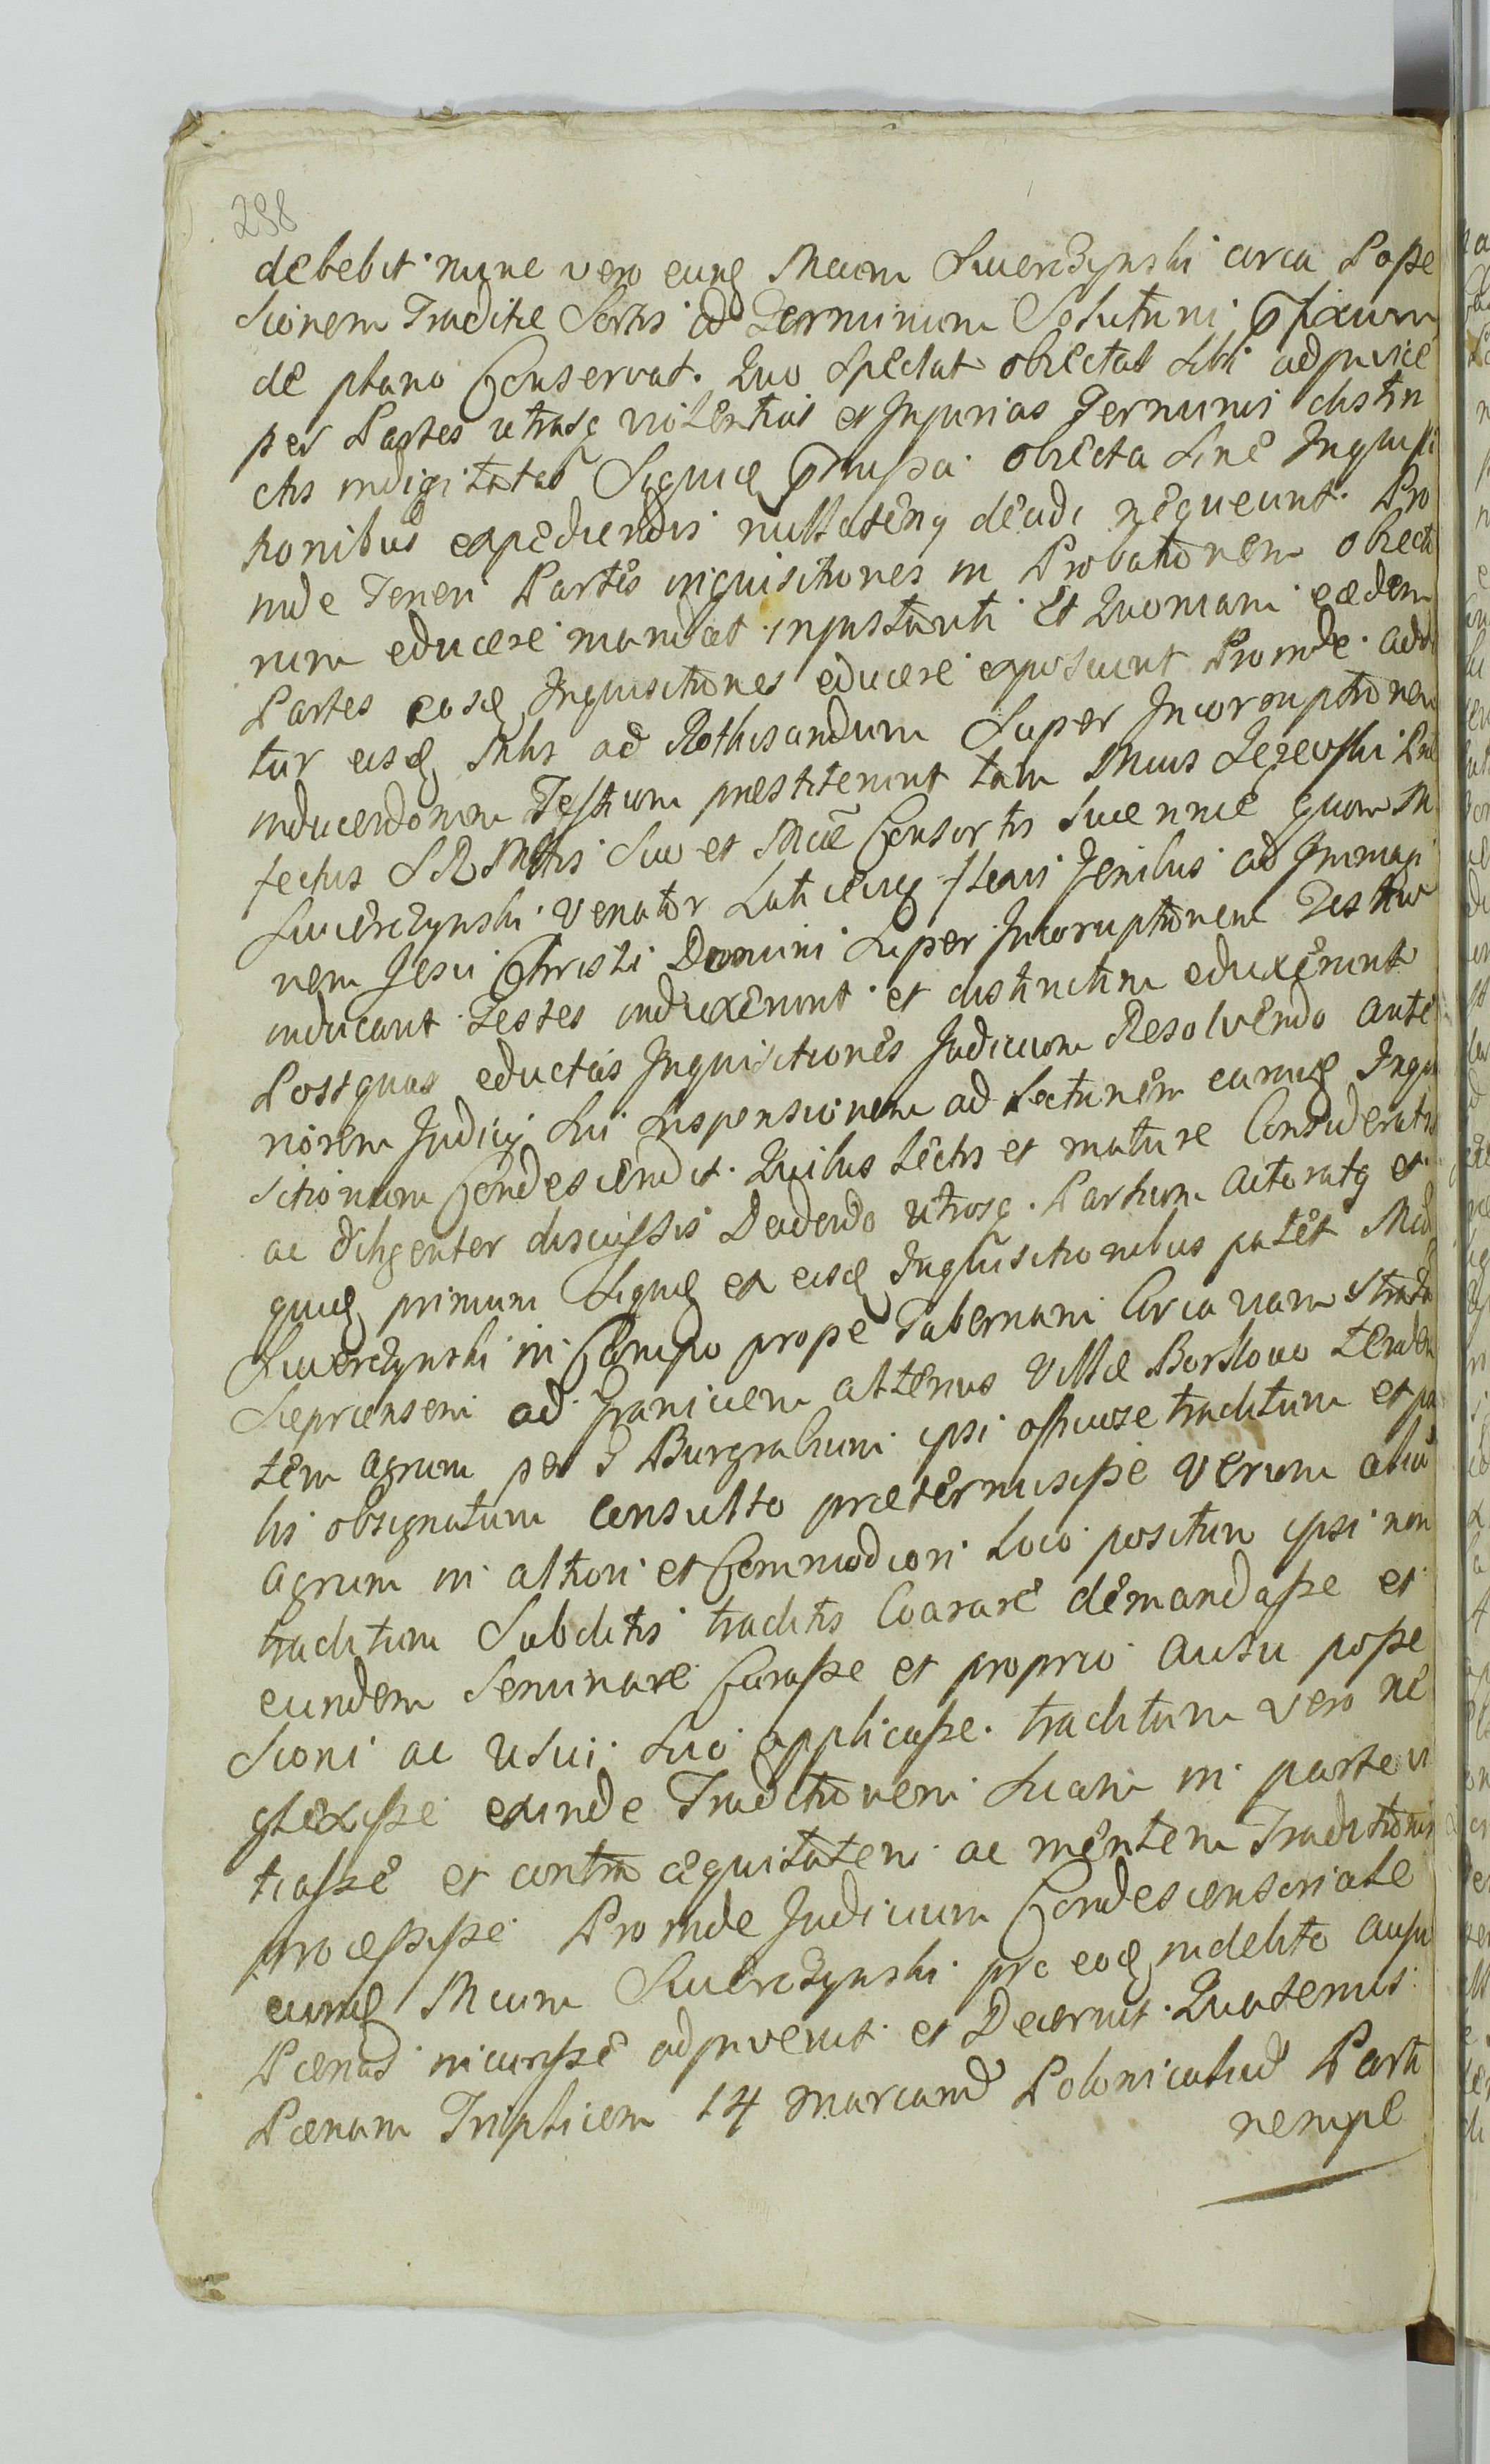 298
debebit nunc vero eunq Mcum Swierczynski circa Posse
sionem Traditæ Sortis ad Terminum Solutum præfixum
de plano Conservat. Quo spectat obiectas sibi adjuvice
per Partes utrasq violentias et Injurias Terminis distin
ctis indigitatas Siquidem præmissa obiecta sine Inquisi
tionibus expediendis nullatenq decidi nequeunt. Pro
inde Teneri Partes inquisitiones in Probationem obiecto
rum educere mandat injustanti Et Quoniam eædem
Partes easd Inquisitiones educere exposcunt Proinde addi
tur eisd Mhs ad Rothisandum Super Incorruptionem
inducendorum Testium præstiterunt tam Mcus Jezewski Præ
fectus SRMttis Suo et Mcæ Consortis Suæ nnie quam M
Swierczynski Venator Laticensq flexis Genibus ad Imagi
nem Jesu Christi Domini Super Incoruptionem Testium
inducant Testes induxerunt et distinctim eduxerunt
Postquas eductas Inquisitiones Judicium Resolvendo ante
riorem Judicij Sui Suspensionem ad Lecturam earund Inqui
sitionum Condescendit. Quibus Lectis et mature Consideratis
ac diligenter discussis Decidendo utrosq. Partium actoratq et
quid primum Siquid ex eisd Inquisitionibus patet Mcd
Swierczynski in Campo prope Tabernam Circa viam Strata
Sieprcensem ad Granicem alterius Villæ Borkowo tenden
tem agrum per G Burgrabium ipsi officiose traditum et pa
lis obsignatum consulto prætermisisse verum aliu
agrum in altiori et Commodiori Loco positum ipsi non
traditum Subditis traditis Coarare demandasse et
eundem Seminare Curasse et proprio ausu posse
sioni ac usui suo applicasse. traditum vero ne
glexisse exinde Traditionem suam in parte vi
tiasse et contra æquitatem ac mentem Traditionis
processisse Proinde Judicium Condescensoriale
eund Mcum Swierczynski pro eod indebito ausu
Pænas incurrisse adjuvenit et Decernit. Quatenus
Pænam Triplicem 14 marcarum Polonicalium Parti
nempe